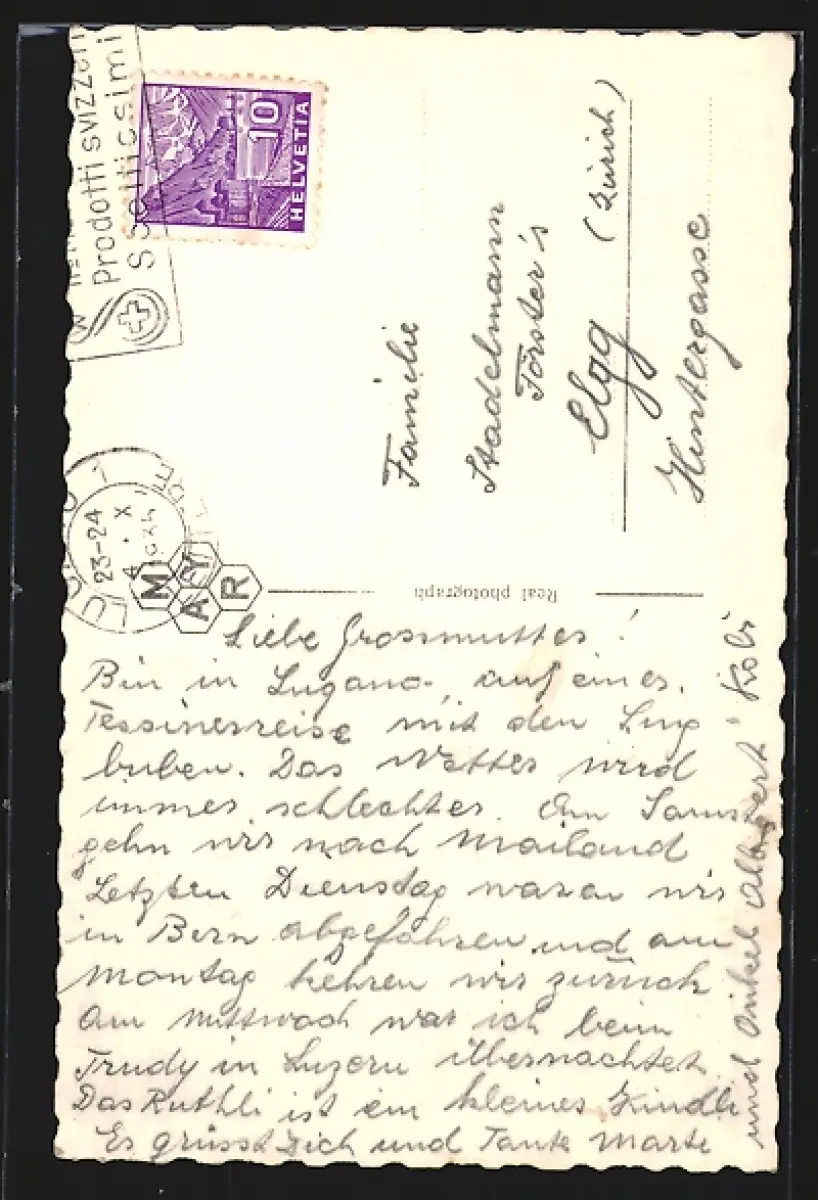 Prodotti svizzeri
HELVETIA
10
23-24
4. X
MAYR
Real photograph
Familie
Stadelmann
Förster's
Elgg (Zürich)
Hintergasse
Liebe Grossmutter!
Bin in Lugano auf einer
Tessinerreise mit den Sing
buben. Das Wetter wird
immer schlechter. Am Samstg
gehn wir nach Mailand
Letzten Dienstag waren wir
in Bern abgefahren und am
Montag kehren wir zurück
Am Mittwoch war ich beim
Trudy in Luzern übernachtet
Das Ruthli ist ein kleines Kindli
Es grüsst Dich und Tante Marti
und Onkel Albert